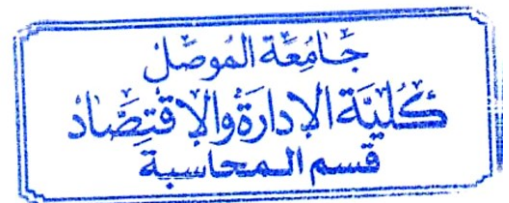 جَامِعَة المُوصِل
كُليَّة الإدارَة وَالاقتِصَاد
قسم المحاسبة